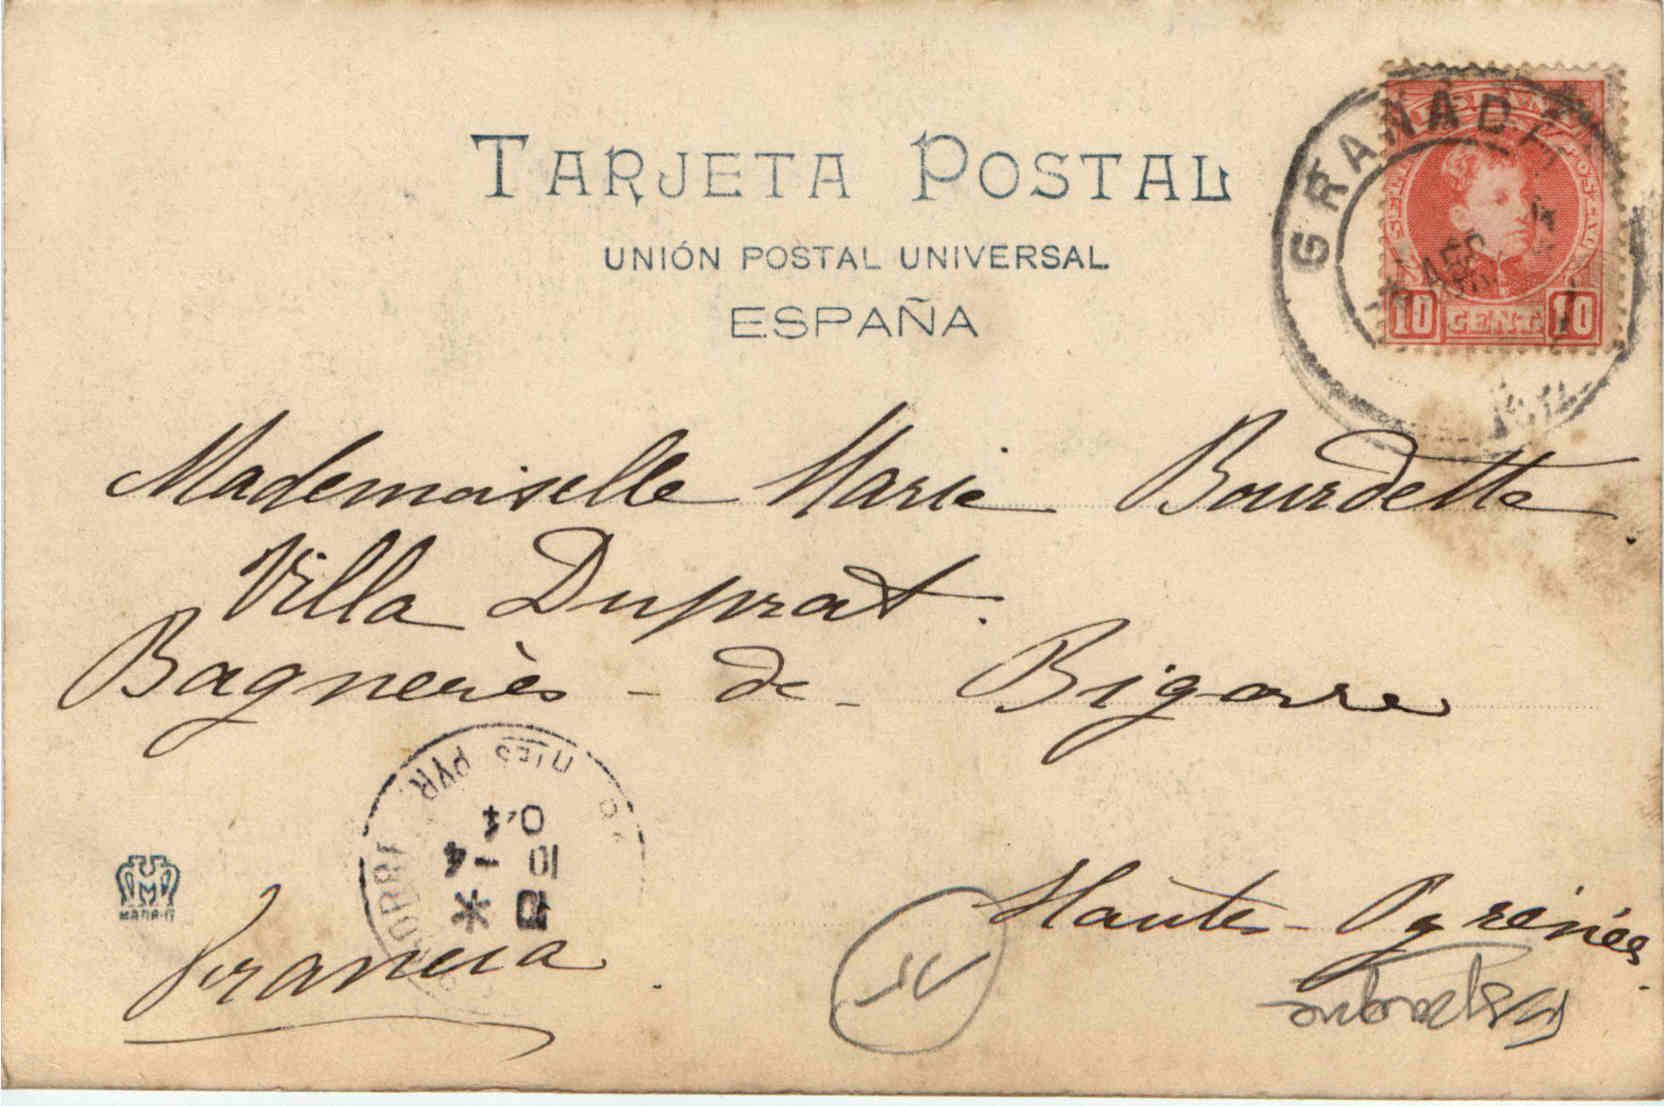 TARJETA POSTAL
UNIÓN POSTAL UNIVERSAL
ESPAÑA
GRANADA
10 CENT. 10
Mademoiselle Marie Bourdette.
Villa Duprat.
Bagnerès - de - Bigorre
Hautes-Pyrénées.
Francia.
HTES PYR.
10 -4
04
M